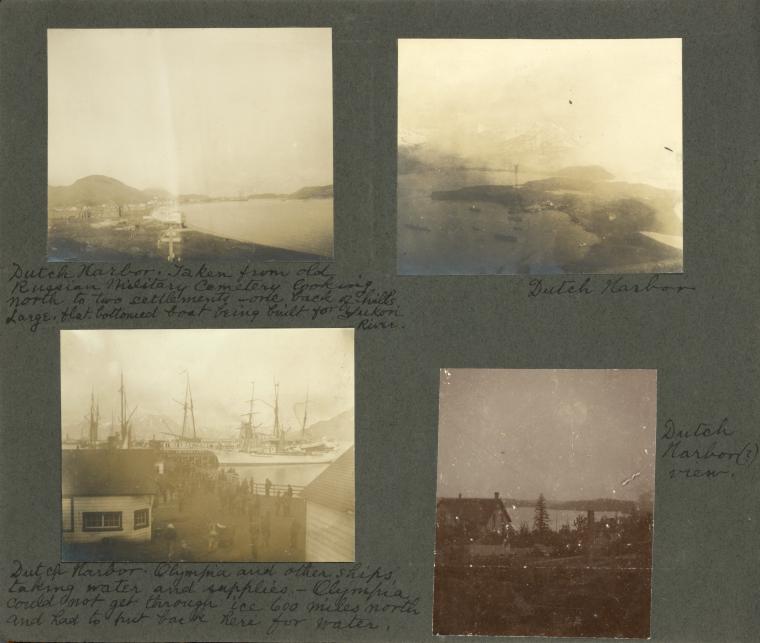 Dutch Harbor. Taken from old
Russian Military Cemetery looking
north to two settlements - one back of hills
Large, flat bottomed boat being built for Yukon
River.
Dutch Harbor
Dutch Harbor. Olympia and other ships
taking water and supplies. - Olympia
could not get through ice 600 miles north
and had to put back here for water.
Dutch
Harbor (?)
view.